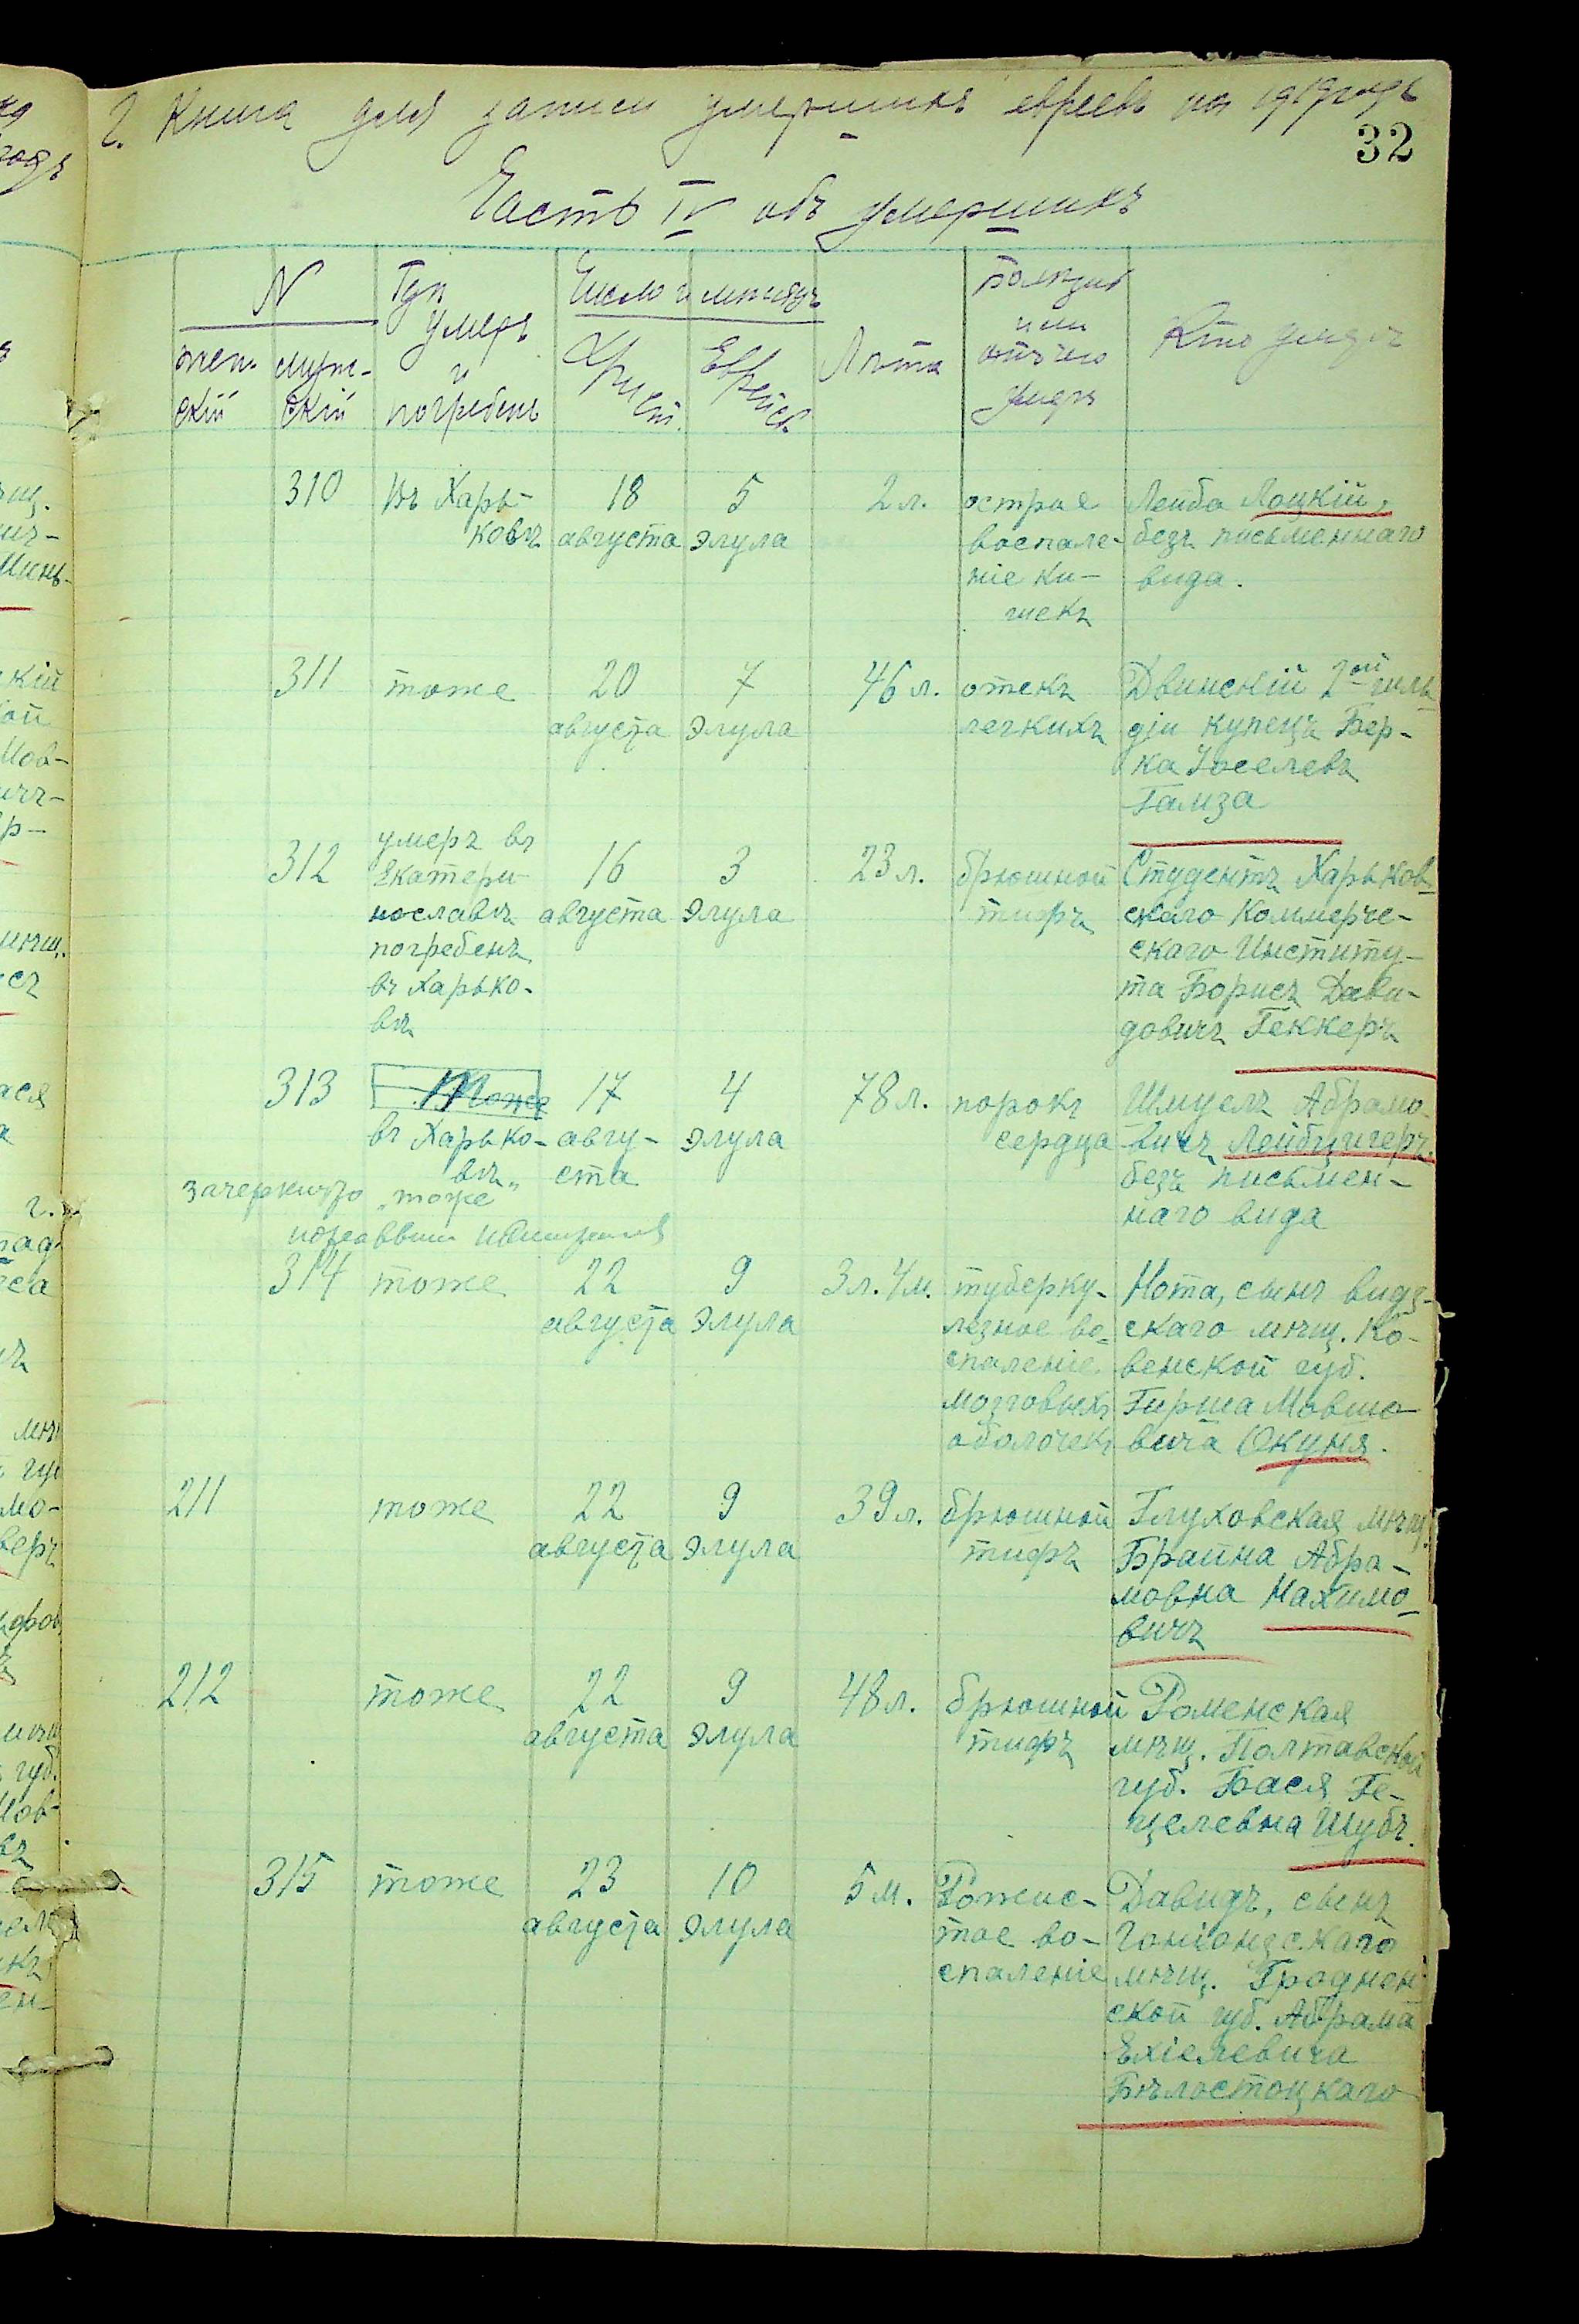 2. Книга для записи умершихъ евреевъ на 1919 годъ
32
Часть IV объ умершихъ
N
жен-
скій
муж-
скій
Гдѣ
умеръ
и
погребенъ
Число и мѣсяцъ
Христ.
Еврейск.
Лѣта
Болѣзнь
или
отъ чего
умеръ
Кто умеръ
310
въ Харь-
ковѣ
18
августа
5
Элула
2 л.
острое
воспале-
ніе ки-
шекъ
Лейба Лоцкій,
безъ письменнаго
вида.
311
тоже
20
августа
7
Элула
46 л.
отекъ
легкихъ
Двинскій 2ой гиль-
діи купецъ Бер-
ка Іоселевъ
Гамза
312
умеръ въ
Екатери-
нославѣ
погребенъ
въ Харько-
вѣ
16
августа
3
Элула
23 л.
брюшной
тифъ
Студентъ Харьков-
скаго Коммерче-
скаго Институ-
та Борисъ Дави-
довичъ Геккеръ
313
Тоже
въ Харько-
вѣ
17
авгу-
ста
4
Элула
78 л.
порокъ
сердца
Шмуель Абрамо-
вичъ Лейбцигеръ
безъ письмен-
наго вида
зачеркнуто „тоже"
314
тоже
22
августа
9
Элула
3 л. 4 м.
туберку-
лезное во-
спаленіе
мозговыхъ
оболочекъ
Нота, сынъ видз-
скаго мѣщ. Ко-
венской губ.
Гирша Мовшо-
вича Окуня.
211
тоже
22
августа
9
Элула
39 л.
брюшной
тифъ
Глуховская мѣщ.
Брайна Абра-
мовна Нахимо-
вичъ
212
тоже
22
августа
9
Элула
48 л.
брюшной
тифъ
Роменская
мѣщ. Полтавской
губ. Бася Ге-
целевна Шубъ.
315
тоже
23
августа
10
Элула
5 м.
Рожис-
тое во-
спаленіе
Давидъ, сынъ
Гоніондзскаго
мѣщ. Гроднен-
ской губ. Абрама
Ехіелевича
Бѣлостоцкаго